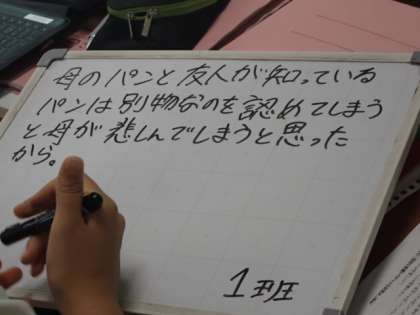 母のパンと友人が知っている
パンは別物なのを認めてしまう
と母が悲しんでしまうと思った
から。
1班